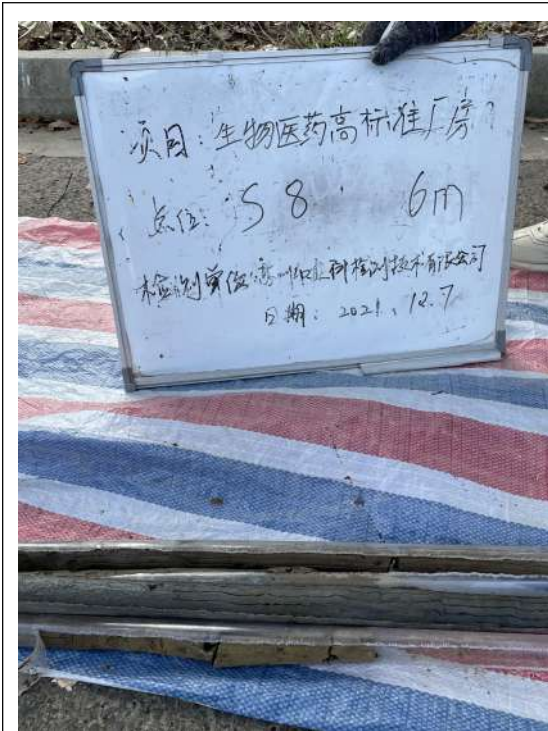 项目: 生物医药高标准厂房
点位: S8 6m
检测单位: 州 科检测技术有限公司
日期: 2021.12.7